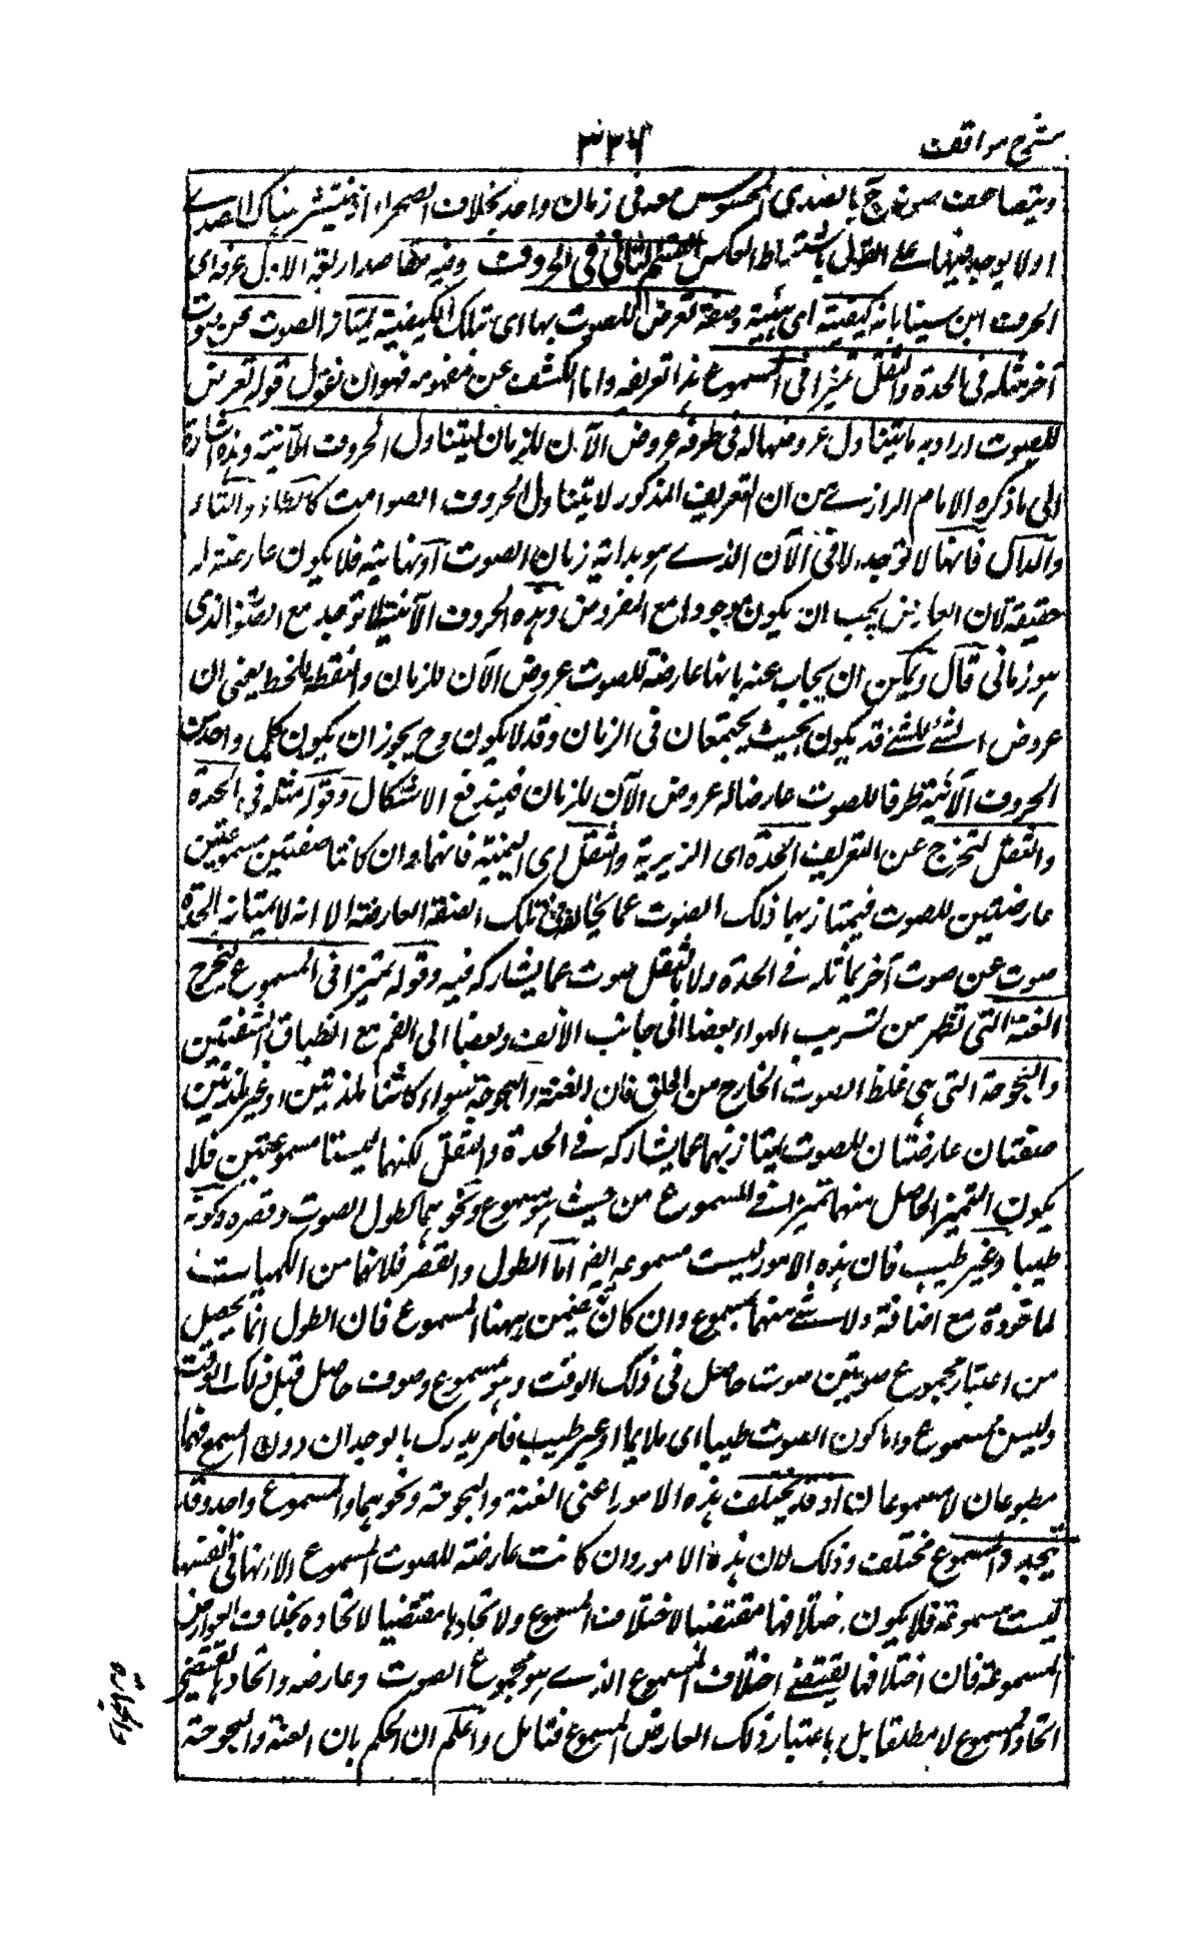 شرح مواقف
٣٢٦
ويتضاعف صوته ح بالصدى المحسوس معه فى زمان واحد بخلاف الصحراء اذ ينتشر هناك الصدى
اولا يوجد فيها على القول باشتراط العكس القسم الثانى فى الحروف وفيه مقاصد اربعة الاول عرفه اى
الحرف ابن سينا بانه كيفية اى هيئة وصفة تعرض للصوت بها اى بتلك الكيفية يمتاز الصوت عن صوت
آخر مثله فى الحدة والثقل تميزا فى المسموع هذا تعريفه واما الكشف عن مفهومه فهو ان نقول قوله تعرض
للصوت اراد به ما يتناول عروضها له فى طرفه عروض الآن للزمان ليتناول الحروف الآنية وهذا اشارة
الى ما ذكره الامام الرازى من ان التعريف المذكور لا يتناول الحروف الصوامت كالطاء والتاء
والدال فانها لا توجد الا فى الآن الذى هو بداية زمان الصوت او نهايته فلا يكون عارضة له
حقيقة لان العارض يجب ان يكون موجودا مع المعروض وهذه الحروف الآنية لا توجد مع الصوت الذى
هو زمانى قال ويمكن ان يجاب عنه بانها عارضة للصوت عروض الآن للزمان والنقطة للخط يعنى ان
عروض الشئ للشئ قد يكون بحيث يجتمعان فى الزمان وقد لا يكون وح يجوز ان يكون كل واحد من
الحروف الآنية طرفا للصوت عارضا له عروض الآن للزمان فيندفع الاشكال وقوله مثله فى الحدة
والثقل لتخرج عن التعريف الحدة اى الزيرية والثقل اى البمية فانهما وان كانتا صفتين مسموعتين
عارضتين للصوت فيمتاز بهما ذلك الصوت عما يخالفه فى تلك الصفة العارضة الا انه لا يمتاز بالحدة
صوت عن صوت آخر يماثله فى الحدة ولا بالثقل صوت عما يشاركه فيه وقوله تميزا فى المسموع ليخرج
الغنة التى تظهر من تسريب الهواء بعضا الى جانب الانف وبعضا الى الفم مع انطباق الشفتين
والبحوحة التى هى غلظ الصوت الخارج من الحلق فان الغنة والبحوحة سواء كانتا ملذتين او غير ملذتين
صفتان عارضتان للصوت يمتاز بهما عما يشاركه فى الحدة والثقل لكنهما ليستا مسموعتين فلا
يكون التميز الحاصل منهما تميزا فى المسموع من حيث هو مسموع ونحوهما كطول الصوت وقصره وكونه
طيبا وغير طيب فان هذه الامور ليست مسموعة ايضا اما الطول والقصر فلانهما من الكميات
لماخوذة مع اضافة ولا شئ منهما بمسموع وان كان يتضمن ههنا المسموع فان الطول انما يحصل
من اعتبار مجموع صوتين صوت حاصل فى ذلك الوقت وهو مسموع وصوت حاصل قبل ذلك الوقت
وليس بمسموع واما كون الصوت طيبا اى ملايما او غير طيب فامر يدرك بالوجدان دون السمع فهما
مطبوعان لا مسموعان اذ قد يختلف هذه الامور اعنى الغنة والبحوحة ونحوهما والمسموع واحد وقد
يتحد والمسموع مختلف وذلك لان هذه الامور وان كانت عارضة للصوت المسموع الا انها فى انفسها
ليست مسموعة فلا يكون اختلافها مقتضيا لاختلاف المسموع ولا اتحادها مقتضيا لاتحاده بخلاف العوارض
المسموعة فان اختلافها يقتضى اختلاف المسموع الذى هو مجموع الصوت وعارضه واتحادها يقتضى
اتحاد المسموع لا مطلقا بل باعتبار ذلك العارض المسموع فتامل واعلم ان الحكم بان الغنة والبحوحة